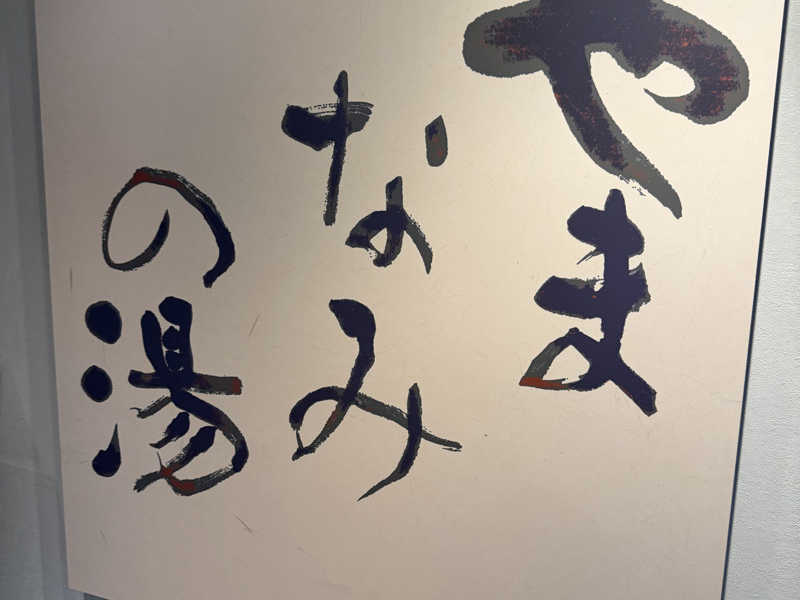 やま
なみ
の湯